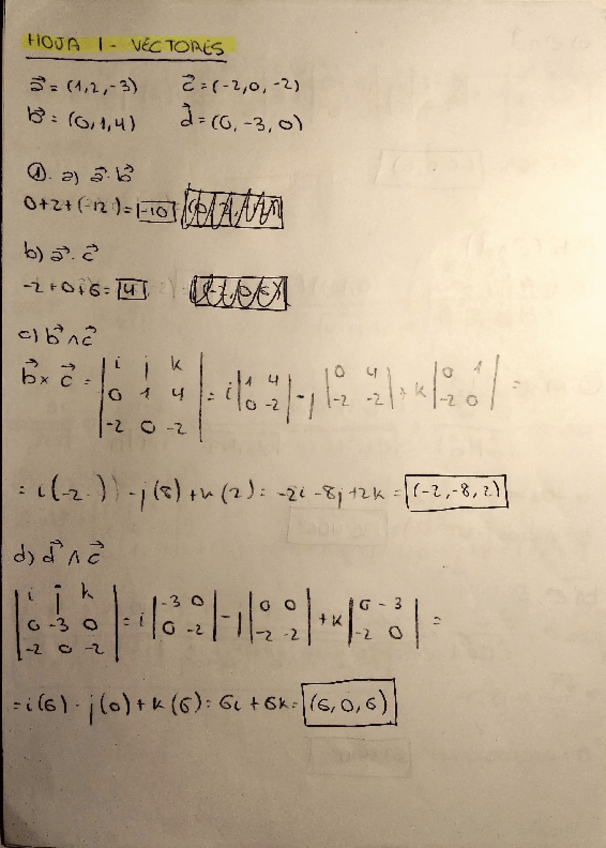 HOJA 1 - VECTORES
a⃗ = (1,2,-3) c⃗ = (-2,0,-2)
b⃗ = (0,1,4) d⃗ = (0,-3,0)
①. a) a⃗·b⃗
0+2+(-12)= -10
b) a⃗·c⃗
-2+0+6= 4
c) b⃗ ∧ c⃗
b⃗ × c⃗ = | i j k | = i | 1 4 | - j | 0 4 | + k | 0 1 | =
| 0 1 4 | | 0 -2 | | -2 -2 | | -2 0 |
| -2 0 -2 |
= i(-2) - j(8) + k(2) = -2i -8j +2k = (-2,-8,2)
d) d⃗ ∧ c⃗
| i j k | = i | -3 0 | - j | 0 0 | + k | 0 -3 | =
| 0 -3 0 | | 0 -2 | | -2 -2 | | -2 0 |
| -2 0 -2 |
= i(6) - j(0) + k(6) = 6i + 6k = (6,0,6)